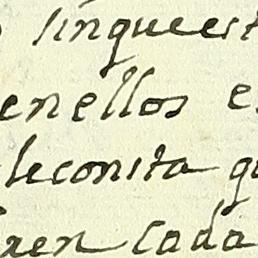 sinquest
enellos e
leconsta q
en cada